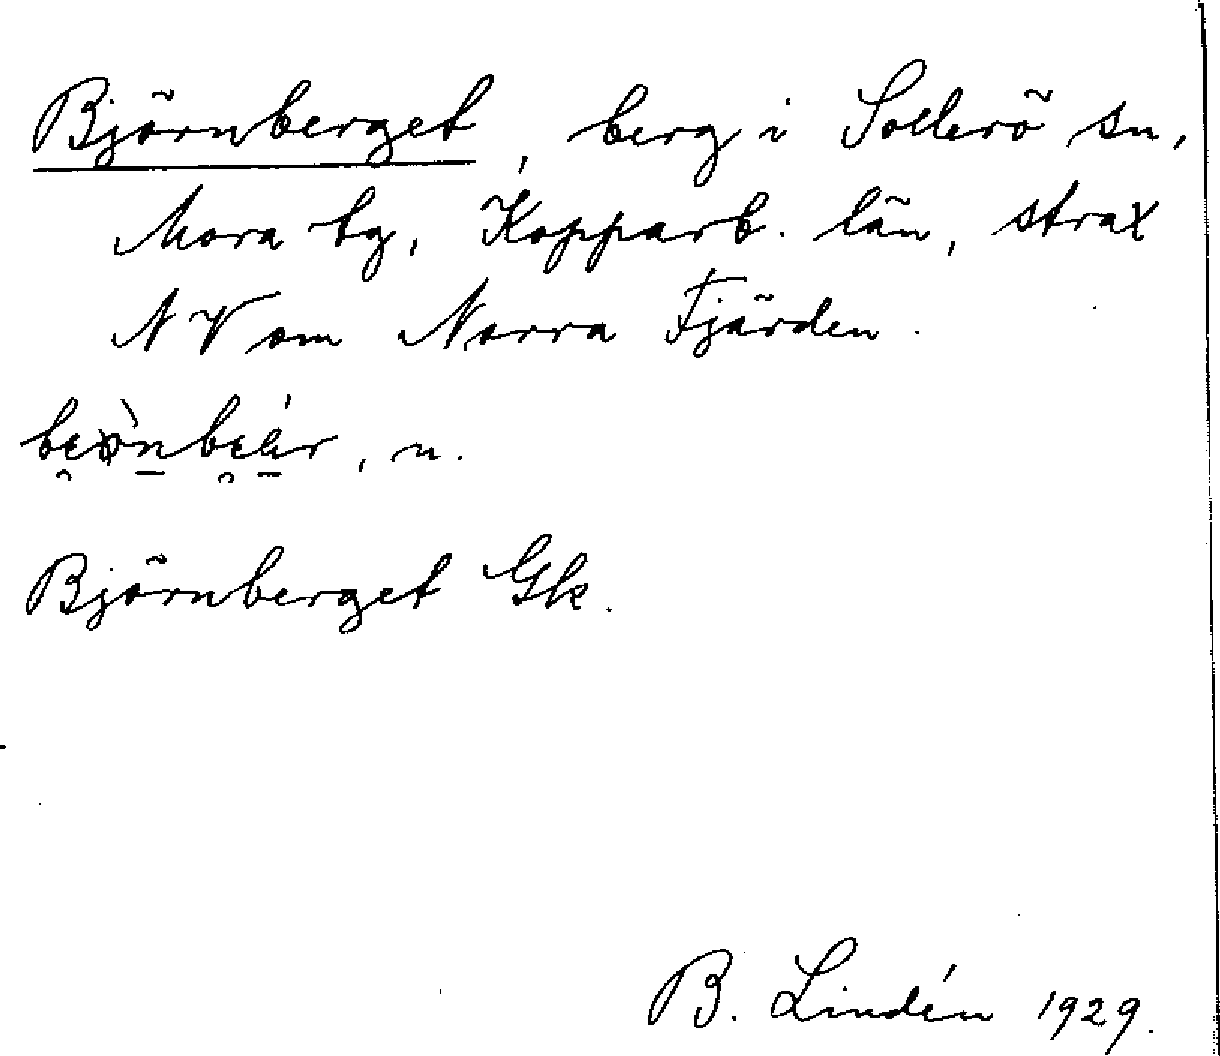 Björnberget, berg i Sollerö sn,
Mora tg, Kopparb. län, strax
NV om Norra Fjärden.
, n.
Björnberget Gk.
B. Lindén 1929.